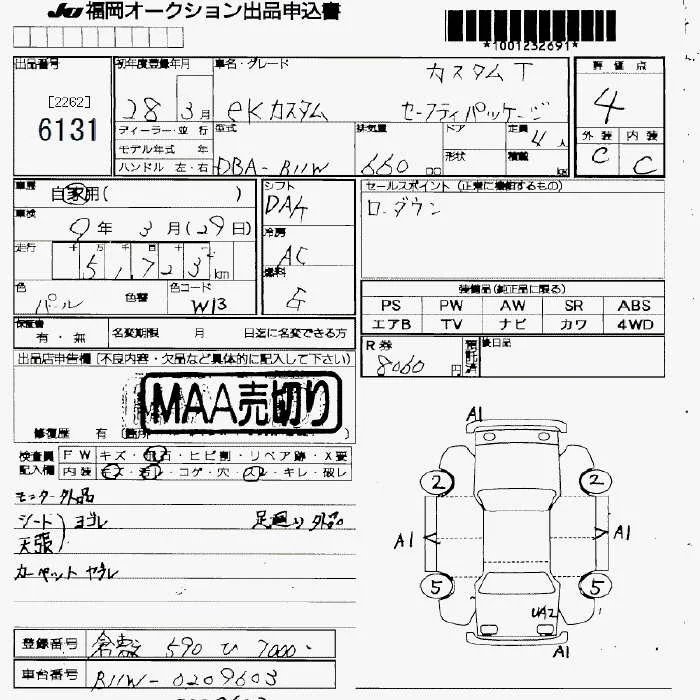 JU 福岡オークション出品申込書
*1001232691*
出品番号 [2262] 6131
初年度登録年月 28 3月
車名・グレード カスタムT
eKカスタム セーフティパッケージ
評価点 4
外装 C 内装 C
ディーラー・並行
モデル年式 年
ハンドル 左・右
型式 DBA-B11W
排気量 660 cc
ドア 形状
定員 4人
積載 kg
車歴 自家用( )
車検 9年 3月(29日)
走行 十 万 千 百 十 51,723 km
色 パール 色替 色コード W13
シフト DA4
冷房 AC
燃料 G
セールスポイント (正常に機能するもの)
ローダウン
装備品(純正品に限る)
PS PW AW SR ABS
エアB TV ナビ カワ 4WD
保証書 有・無
名変期限 月 日迄に名変できる方
R券 8060円 預託済
後日品
出品店申告欄 [不良内容・欠品など具体的に記入して下さい]
MAA売切り
修復歴 有 [箇所
検査員記入欄
FW キズ・飛石・ヒビ割・リペア跡・X要
内装 キズ・汚れ・コゲ・穴・スレ・キレ・破レ
モニター外品
シート 天張) ヨゴレ
足廻り外品
カーペット ヤブレ
A1
2 2
A1 A1
5 5
UA2
A1
登録番号 倉敷 590 ひ 7000
車台番号 B11W-0209603